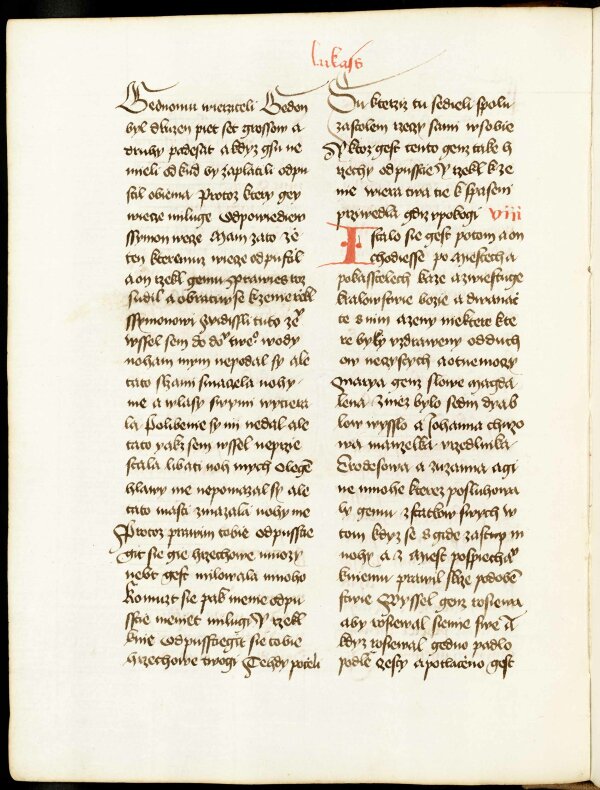 lukass
Gednomu wierziteli Geden
byl dluzen piet set grossow a
druhy padesat a kdyz gsu ne
mieli od kud by zaplatili odpu
stil obiema Protoz ktery gey
wieze miluge Odpowiediew
ssymon weze Mam zato ze
ten kteremuz wieze odpustil
a on rzekl gemu Prawies roz
sudil a obrativ se k zenie rzekl
ssymonowi zwidissli tuto zeno
wssel sem do domu tweho wody
noham mym nepodal sy ale
tato slzami smaczela nohy
me a wlasy swymi wytiera
la Polibenie sy mi nedal ale
tato yakz sem wssel neprzie
stala libati noh mych Olegem
hlawy me nepomazal sy ale
tato masti zmazala nohy me
Protoz prawim tobie odpusstie
git sie gie hrzechowe mnozy
nebt gest milowala mnoho
Komuzt sie pak menie odpu
sstie menet milugi Y rzekl
knie Odpusstiegit sie tobie
hrzechowe twogi Tehdy poczeli
Su kterziz tu sedieli spolu
zastolem rzeczy sami w sobie
Y ktoz gest tento genz take h
rzechy odpusstie Y rzekl k ze
nie wiera twa tie k spaseni
przywedla gdiz w pokogi viii
Istalo sie gest potom a on
chodiesse po miestech a
po kasstelech kaze a zwiestuge
kralowstwie bozie a dwanact
te s nim a zeny niektere kte
re byly vzdraweny od duch
ow neczystych a ot nemoczy
Marya genz slowe magda
lena z niez bylo sedm dyab
low wysslo a Johanna chuzo
wa manzelka vrzedlnika
Erodesowa a zuzanna a gi
ne mnohe kterez posluhowa
ly gemu z statkow swych w
tom kdyz se s gide zastup m
nohy a z miest pospiechachu
k niemu prawil skrze podoben
stwie Wyssel genz rosiewa
aby rosiewal siemie swe A
kdyz rosiewal gedno padlo
podle czesty a potlaczeno gest